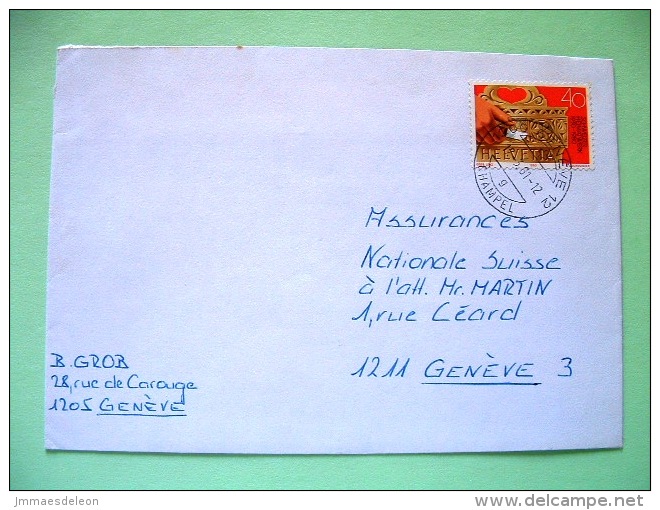 40
HELVETIA
CHAMPEL
Assurances
Nationale Suisse
à l'att. Mr. MARTIN
1, rue Céard
1211 GENÈVE 3
B. GROB
28, rue de Carouge
1205 GENÈVE
jmmaesdeleon
delcampe.net